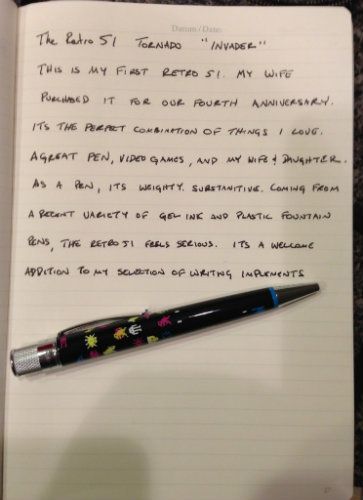 Datum / Date:
The Retro 51 TORNADO "INVADER"
THIS IS MY FIRST RETRO 51. MY WIFE
PURCHASED IT FOR OUR FOURTH ANNIVERSARY.
ITS THE PERFECT COMBINATION OF THINGS I LOVE.
A GREAT PEN, VIDEO GAMES, AND MY WIFE & DAUGHTER.
AS A PEN, ITS WEIGHTY. SUBSTANITIVE. COMING FROM
A RECENT VARIETY OF GEL INK AND PLASTIC FOUNTAIN
PENS, THE RETRO 51 FEELS SERIOUS. ITS A WELCOME
ADDITION TO MY SELECTION OF WRITING IMPLEMENTS